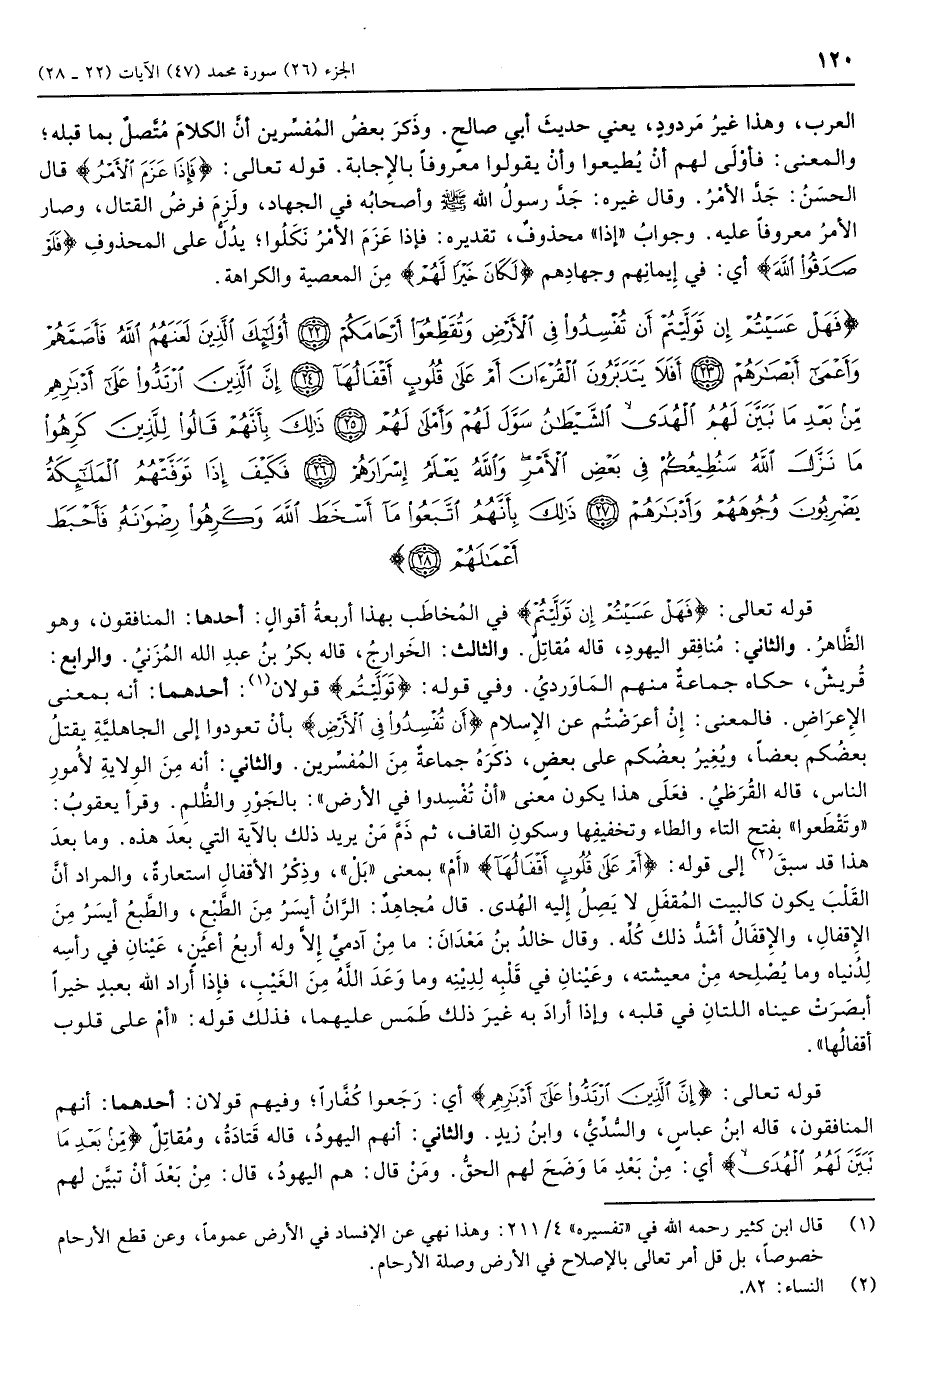 ١٢٠
الجزء (٢٦) سورة محمد (٤٧) الآيات (٢٢ ـ ٢٨)
العرب، وهذا غيرُ مَردودٍ، يعني حديثَ أبي صالحٍ. وذَكَرَ بعضُ المُفسِّرين أنَّ الكلامَ مُتَّصلٌ بما قبله؛
والمعنى: فأوْلَى لهم أنْ يُطيعوا وأنْ يقولوا معروفاً بالإجابة. قوله تعالى: ﴿فَإِذَا عَزَمَ ٱلْأَمْرُ﴾ قال
الحسَنُ: جَدَّ الأمْرُ. وقال غيره: جَدَّ رسولُ الله ﷺ وأصحابُه في الجهاد، ولَزِمَ فرضُ القتال، وصار
الأمرُ معروفاً عليه. وجوابُ «إذا» محذوفٌ، تقديره: فإذا عَزَمَ الأمْرُ نَكَلُوا؛ يدُلُّ على المحذوفِ ﴿فَلَوْ
صَدَقُوا۟ ٱللَّهَ﴾ أي: في إيمانِهم وجهادِهم ﴿لَكَانَ خَيْرًا لَّهُمْ﴾ مِنَ المعصية والكراهة.
﴿فَهَلْ عَسَيْتُمْ إِن تَوَلَّيْتُمْ أَن تُفْسِدُوا۟ فِى ٱلْأَرْضِ وَتُقَطِّعُوٓا۟ أَرْحَامَكُمْ ٢٢ أُو۟لَٰٓئِكَ ٱلَّذِينَ لَعَنَهُمُ ٱللَّهُ فَأَصَمَّهُمْ
وَأَعْمَىٰٓ أَبْصَٰرَهُمْ ٢٣ أَفَلَا يَتَدَبَّرُونَ ٱلْقُرْءَانَ أَمْ عَلَىٰ قُلُوبٍ أَقْفَالُهَآ ٢٤ إِنَّ ٱلَّذِينَ ٱرْتَدُّوا۟ عَلَىٰٓ أَدْبَٰرِهِم
مِّنۢ بَعْدِ مَا تَبَيَّنَ لَهُمُ ٱلْهُدَى ۙ ٱلشَّيْطَٰنُ سَوَّلَ لَهُمْ وَأَمْلَىٰ لَهُمْ ٢٥ ذَٰلِكَ بِأَنَّهُمْ قَالُوا۟ لِلَّذِينَ كَرِهُوا۟
مَا نَزَّلَ ٱللَّهُ سَنُطِيعُكُمْ فِى بَعْضِ ٱلْأَمْرِ ۖ وَٱللَّهُ يَعْلَمُ إِسْرَارَهُمْ ٢٦ فَكَيْفَ إِذَا تَوَفَّتْهُمُ ٱلْمَلَٰٓئِكَةُ
يَضْرِبُونَ وُجُوهَهُمْ وَأَدْبَٰرَهُمْ ٢٧ ذَٰلِكَ بِأَنَّهُمُ ٱتَّبَعُوا۟ مَآ أَسْخَطَ ٱللَّهَ وَكَرِهُوا۟ رِضْوَٰنَهُۥ فَأَحْبَطَ
أَعْمَٰلَهُمْ ٢٨﴾
قوله تعالى: ﴿فَهَلْ عَسَيْتُمْ إِن تَوَلَّيْتُمْ﴾ في المُخاطَب بهذا أربعةُ أقوالٍ: أحدها: المنافقون، وهو
الظَّاهرُ. والثاني: مُنافِقو اليهودِ، قاله مُقاتِلٌ. والثالث: الخَوارجُ، قاله بكرُ بنُ عبدِ الله المُزَنيُّ. والرابع:
قُريشٌ، حكاه جماعةٌ منهم المَاوَرديُّ. وفي قوله: ﴿تَوَلَّيْتُم﴾ قولان(١): أحدهما: أنه بمعنى
الإعراضِ. فالمعنى: إنْ أعرَضْتُم عن الإسلام ﴿أَن تُفْسِدُوا۟ فِى ٱلْأَرْضِ﴾ بأنْ تعودوا إلى الجاهليَّةِ يقتلُ
بعضُكم بعضاً، ويُغِيرُ بعضُكم على بعضٍ، ذكَرَهُ جماعةٌ مِنَ المُفسِّرين. والثاني: أنه مِنَ الوِلايةِ لأمورِ
الناس، قاله القُرَظيُّ. فعَلَى هذا يكون معنى «أنْ تُفْسِدوا في الأرض»: بالجَوْرِ والظُّلم. وقرأ يعقوبُ:
«وتَقْطَعوا» بفتح التاء والطاء وتخفيفِها وسكونِ القاف، ثم ذَمَّ مَنْ يريد ذلك بالآية التي بَعدَ هذه. وما بعدَ
هذا قد سبقَ(٢) إلى قوله: ﴿أَمْ عَلَىٰ قُلُوبٍ أَقْفَالُهَآ﴾ «أَمْ» بمعنى «بَلْ»، وذِكْرُ الأقفالِ استعارةٌ، والمراد أنَّ
القَلْبَ يكون كالبيت المُقفَلِ لا يَصِلُ إليه الهُدى. قال مُجاهِدٌ: الرَّانُ أيسَرُ مِنَ الطَّبْعِ، والطَّبعُ أيسَرُ مِنَ
الإقفالِ، والإقفَالُ أشَدُّ ذلك كُلِّه. وقال خالدُ بنُ مَعْدَانَ: ما مِنْ آدميٍّ إلاَّ وله أربعُ أعيُنٍ، عَيْنانِ في رأسِه
لِدُنياه وما يُصْلِحه مِنْ معيشته، وعَيْنانِ في قَلْبِه لِدِيْنِه وما وَعَدَ اللَّهُ مِنَ الغَيْبِ، فإذا أراد الله بعبدٍ خيراً
أبصَرَتْ عيناه اللتانِ في قلبه، وإذا أرادَ به غيرَ ذلك طَمَس عليهما، فذلك قوله: «أمْ على قلوب
أقفالُها».
قوله تعالى: ﴿إِنَّ ٱلَّذِينَ ٱرْتَدُّوا۟ عَلَىٰٓ أَدْبَٰرِهِم﴾ أي: رَجَعوا كُفَّاراً؛ وفيهم قولان: أحدهما: أنهم
المنافقون، قاله ابنُ عباسٍ، والسُّدِّيُّ، وابنُ زيدٍ. والثاني: أنهم اليهودُ، قاله قَتَادَةُ، ومُقاتِلٌ ﴿مِّنۢ بَعْدِ مَا
تَبَيَّنَ لَهُمُ ٱلْهُدَى ۙ﴾ أي: مِنْ بَعْدِ مَا وَضَحَ لهم الحقُّ. ومَنْ قال: هم اليهودُ، قال: مِنْ بَعْدَ أنْ تبيَّن لهم
(١) قال ابن كثير رحمه الله في «تفسيره» ٤/ ٢١١: وهذا نهي عن الإفساد في الأرض عموماً، وعن قطع الأرحام
خصوصاً، بل قل أمر تعالى بالإصلاح في الأرض وصلة الأرحام.
(٢) النساء: ٨٢.